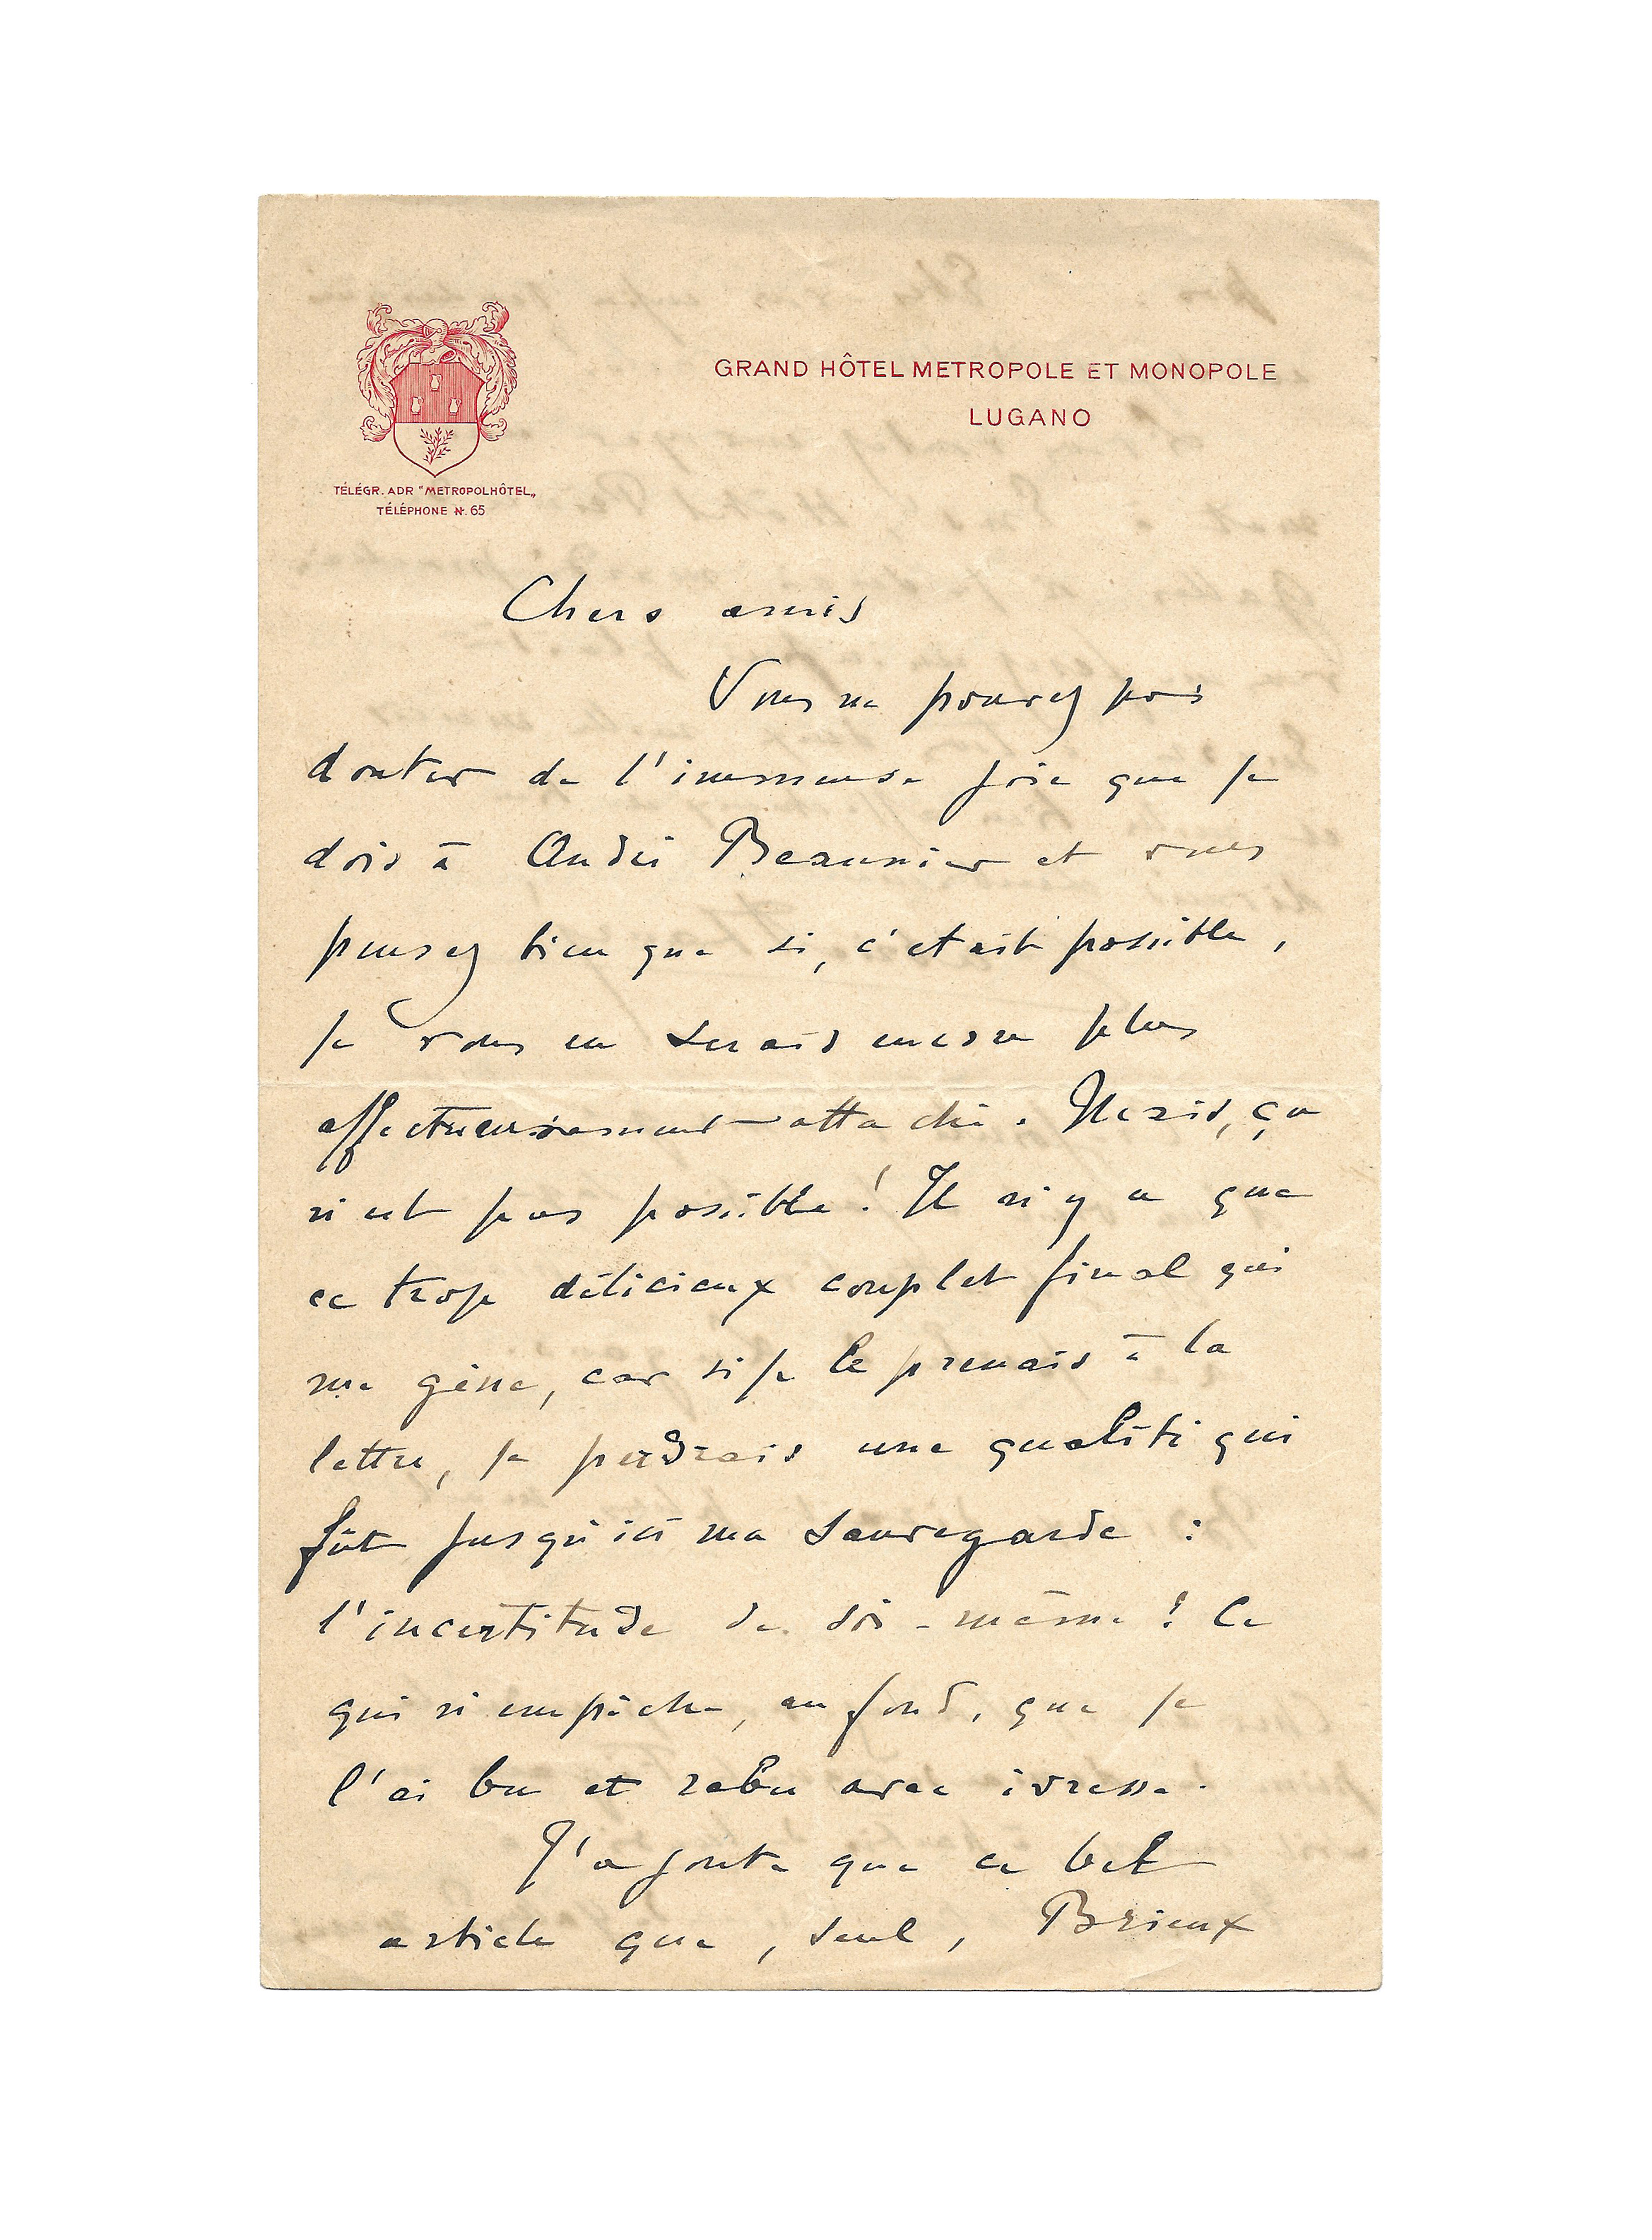 GRAND HÔTEL METROPOLE ET MONOPOLE
LUGANO
TÉLÉGR. ADR "METROPOLHÔTEL„
TÉLÉPHONE N. 65
Chers amis
Vous ne pouvez pas
douter de l'immense joie que je
dois à André Beaunier et vous
pensez bien que si, c'était possible,
je vous en serais encore plus
affectueusement attaché. Mais, ça
n'est pas possible! Il n'y a que
ce trop délicieux couplet final qui
me gêne, car si je le prenais à la
lettre, je perdrais une qualité qui
fût jusqu'ici ma sauvegarde :
l'incertitude de soi-même! Ce
qui n'empêche, au fond, que je
l'ai bu et rebu avec ivresse.
J'ajoute que ce bel
article que, seul, Brieux